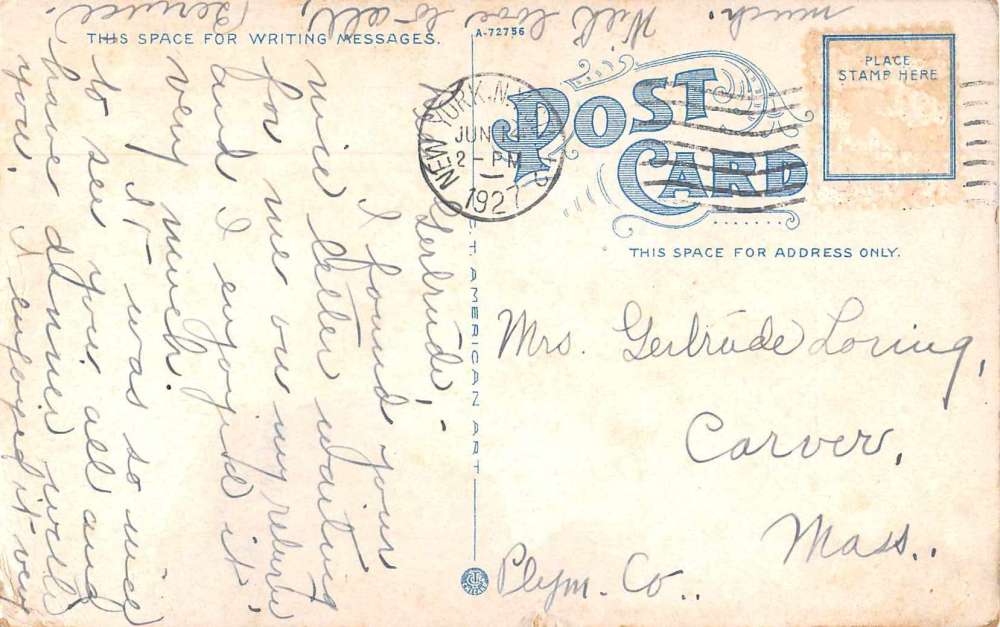 THIS SPACE FOR WRITING MESSAGES.
A-72756
POST
CARD
PLACE
STAMP HERE
NEW YORK, N.Y.
JUN 14
2-PM
1927
THIS SPACE FOR ADDRESS ONLY.
C.T. AMERICAN ART
Mrs. Gertrude Loring,
Carver,
Mass..
Plym. Co..
Dear Gertrude,-
I found your
nice letter waiting
for me on my return
and I enjoyed it
very much.
It was so nice
to see you all and
have dinner with
you. I enjoyed it very
much. With love to all,
Bernice.